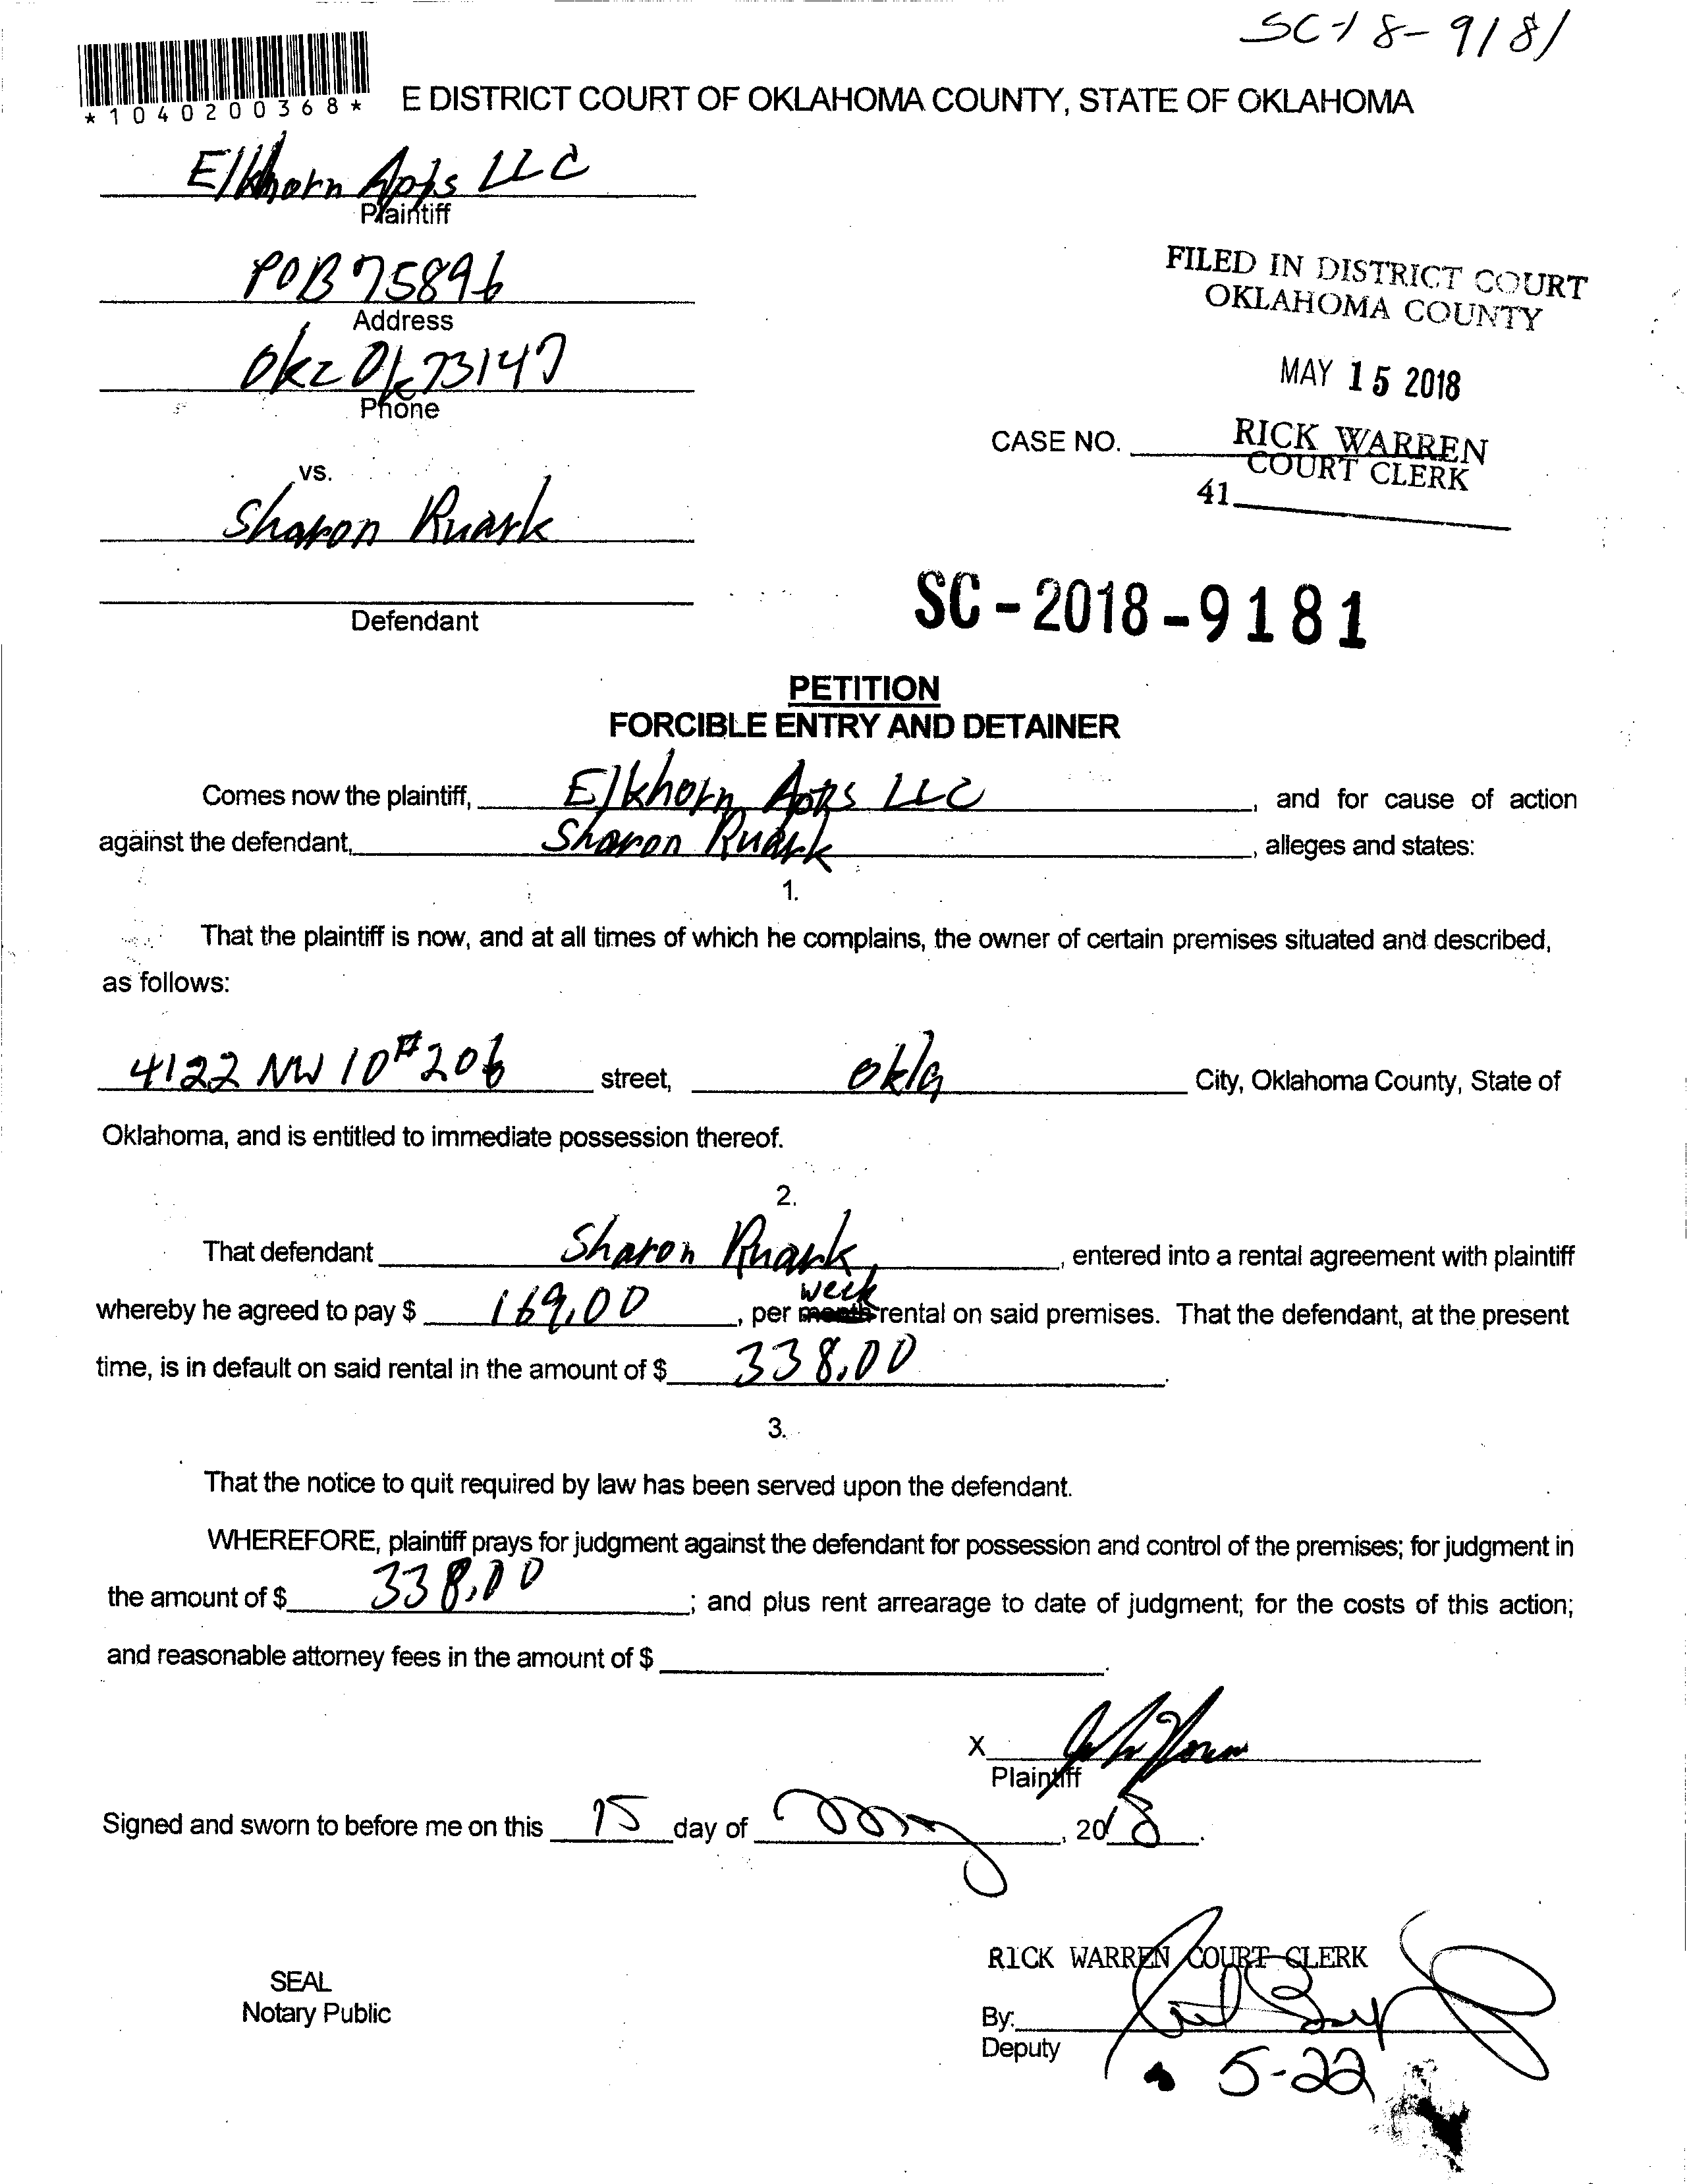 SC-18-9181
*1040200368*
E DISTRICT COURT OF OKLAHOMA COUNTY, STATE OF OKLAHOMA
Elkhorn Apts LLC
Plaintiff
POB 75896
Address
Okc Ok 73147
Phone
FILED IN DISTRICT COURT
OKLAHOMA COUNTY
MAY 15 2018
CASE NO.
RICK WARREN
COURT CLERK
41
vs.
Sharon Ruark
Defendant
SC-2018-9181
PETITION
FORCIBLE ENTRY AND DETAINER
Comes now the plaintiff, Elkhorn Apts LLC, and for cause of action
against the defendant, Sharon Ruark, alleges and states:
1.
That the plaintiff is now, and at all times of which he complains, the owner of certain premises situated and described,
as follows:
4122 NW 10 #206 street, Okla City, Oklahoma County, State of
Oklahoma, and is entitled to immediate possession thereof.
2.
That defendant Sharon Ruark, entered into a rental agreement with plaintiff
week
whereby he agreed to pay $ 169.00, per month rental on said premises. That the defendant, at the present
time, is in default on said rental in the amount of $ 338.00.
3.
That the notice to quit required by law has been served upon the defendant.
WHEREFORE, plaintiff prays for judgment against the defendant for possession and control of the premises; for judgment in
the amount of $ 338.00; and plus rent arrearage to date of judgment; for the costs of this action;
and reasonable attorney fees in the amount of $ .
X
Plaintiff
Signed and sworn to before me on this 15 day of May, 2018.
RICK WARREN COURT CLERK
SEAL
Notary Public
By:
Deputy
5-22